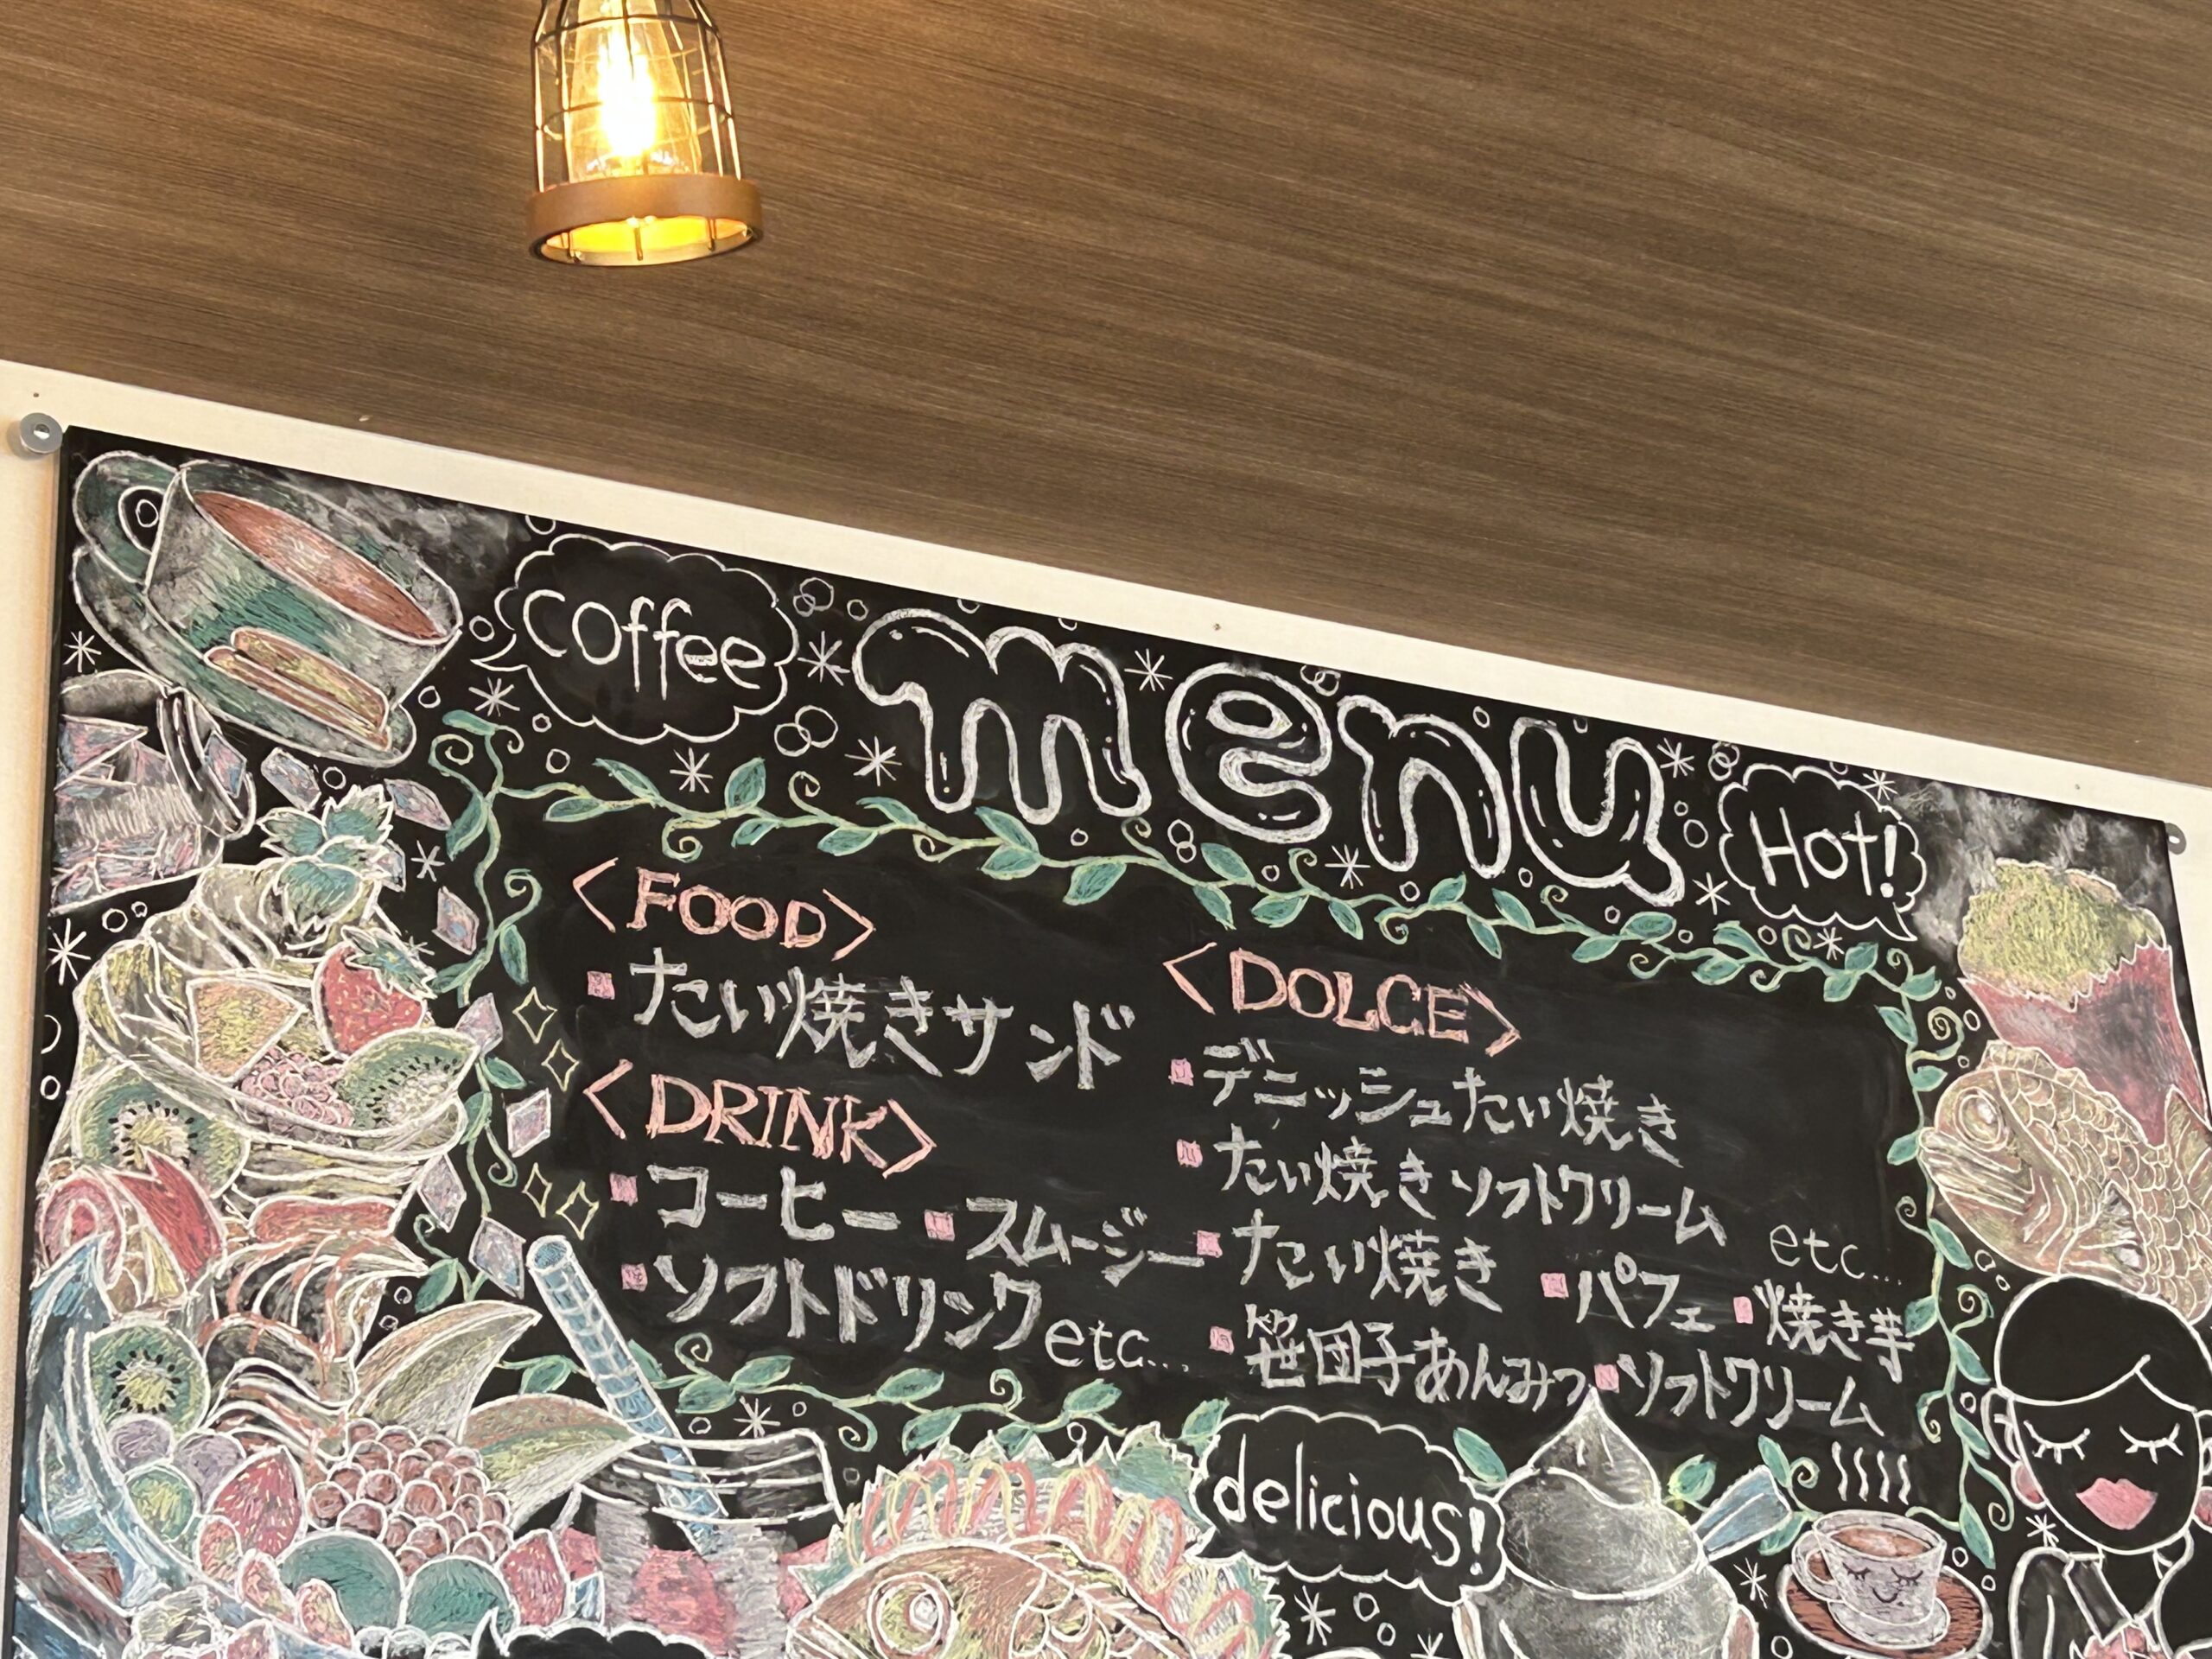 coffee
menu
Hot!
<FOOD>
たい焼きサンド
<DRINK>
コーヒー スムージー
ソフトドリンク etc...
<DOLCE>
デニッシュたい焼き
たい焼きソフトクリーム etc...
たい焼き パフェ 焼き芋
笹団子あんみつ ソフトクリーム
delicious!